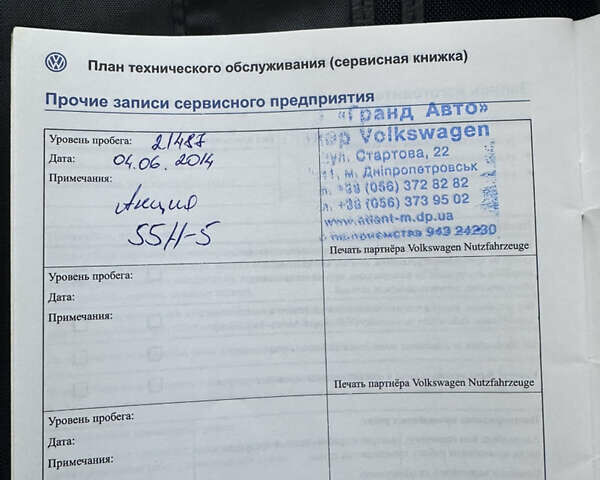 План технического обслуживания (сервисная книжка)
Прочие записи сервисного предприятия
Уровень пробега: 21487
Дата: 04.06.2014
Примечания:
Акция
55H-5
«Гранд Авто»
Volkswagen
вул. Стартова, 22
м. Дніпропетровськ
+38 (056) 372 82 82
+38 (056) 373 95 02
www.atlant-m.dp.ua
943 24230
Печать партнёра Volkswagen Nutzfahrzeuge
Уровень пробега:
Дата:
Примечания:
Печать партнёра Volkswagen Nutzfahrzeuge
Уровень пробега:
Дата:
Примечания: